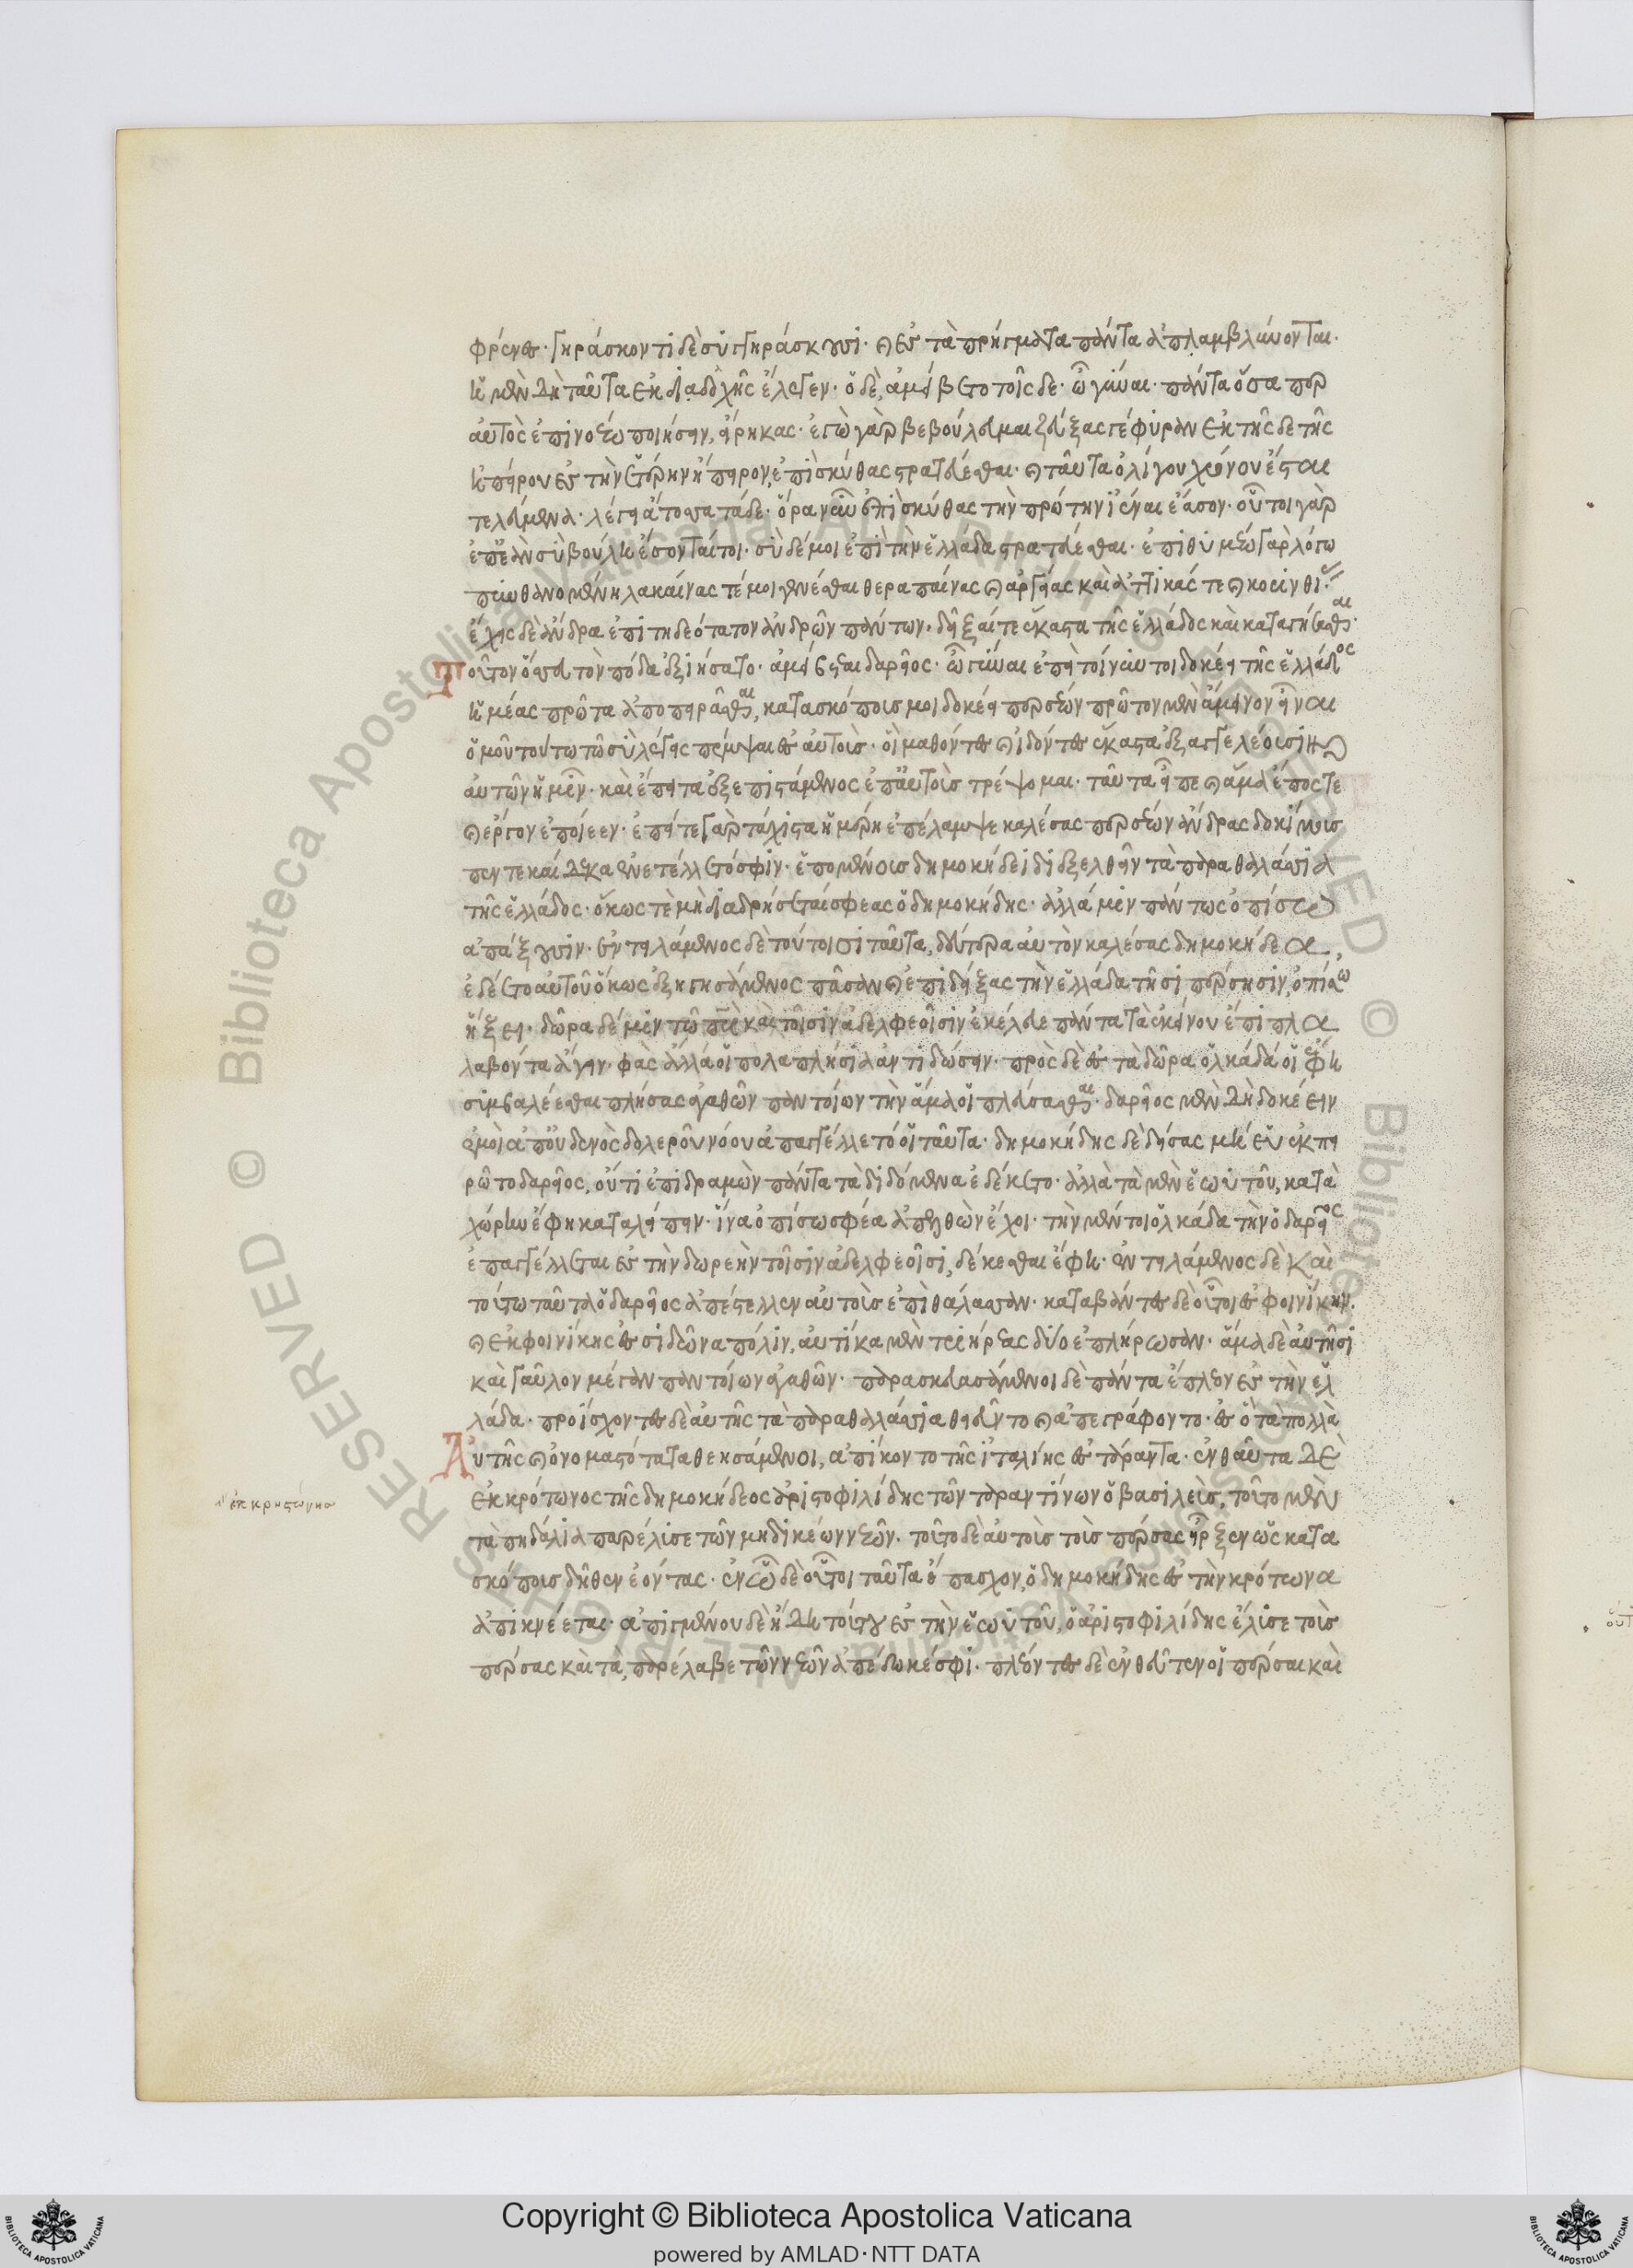 φρένες· γηράσκοντι δὲ συγγηράσκουσι· καὶ ἐς τὰ πρήγματα πάντα ἀπαμβλύνονται·
ἡ μὲν δὴ ταῦτα ἐκ διδαχῆς ἔλεγεν· ὁ δὲ, ἀμείβετο τοῖς δε· ὦ γύναι· πάντα ὅσα περ
αὐτὸς ἐπινοέω ποιήσειν, εἴρηκας· ἐγὼ γὰρ βεβούλευμαι ζεύξας γέφυραν ἐκ τῆς δε τῆς
ἠπείρου ἐς τὴν ἑτέρην ἤπειρον, ἐπὶ σκύθας στρατεύεσθαι· καὶ ταῦτα ὀλίγου χρόνου ἔσται
τελεύμενα· λέγει ἄτοσσα τάδε· ὅρα νῦν ἐπὶ σκύθας τὴν πρώτην ἰέναι ἔασον· οὗτοι γὰρ
ἐπεὰν σὺ βούλῃ ἔσονταί τοι· σὺ δέ μοι ἐπὶ τὴν ἑλλάδα στρατεύεσθαι· ἐπιθυμέω γὰρ λόγω
πυνθανομένη λακαίνας τέ μοι γενέσθαι θεραπαίνας καὶ ἀργείας καὶ ἀττικάς τε καὶ κορινθίας
ἔχεις δὲ ἄνδρα ἐπιτηδεότατον ἀνδρῶν πάντων· δεῖξαί τε ἕκαστα τῆς ἑλλάδος καὶ κατηγήσασθαι·
Τοῦτον ὅς σευ τὸν πόδα ἐξιήσατο· ἀμείβεται δαρεῖος· ὦ γύναι ἐπεὶ τοίνυν τοι δοκέει τῆς ἑλλάδος
ἡμέας πρῶτα ἀποπειρᾶσθαι, κατασκόπους μοι δοκέει περσέων πρῶτον μὲν ἄμεινον εἶναι
ὁμοῦ τούτω τῶ σὺ λέγεις πέμψαι ἐς αὐτοὺς· οἳ μαθόντες καὶ ἰδόντες ἕκαστα ἐξαγγελέουσι
αὐτῶν ἡμῖν· καὶ ἔπειτα ἐξεπιστάμενος ἐπ' αὐτοὺς τρέψομαι· ταῦτα εἶπε καὶ ἅμα ἔπος τε
καὶ ἔργον ἐποίεεν· ἐπεί τε γὰρ τάχιστα ἡμέρη ἐπέλαμψε καλέσας περσέων ἄνδρας δοκίμους
πεντεκαίδεκα ἐνετέλλετό σφιν· ἑπομένους δημοκήδεϊ διεξελθεῖν τὰ παραθαλάσσια
τῆς ἑλλάδος· ὅκως τε μὴ διαδρήσεταί σφεας ὁ δημοκήδης· ἀλλά μιν πάντως ὀπίσω
ἀπάξουσιν· ἐντειλάμενος δὲ τούτοισι ταῦτα, δεύτερα αὐτὸν καλέσας δημοκήδεα,
ἐδέετο αὐτοῦ ὅκως ἐξηγησάμενος πᾶσαν καὶ ἐπιδείξας τὴν ἑλλάδα τῆσι πέρσησιν, ὀπίσω
ἥξει· δῶρα δέ μιν τῶ πατρὶ καὶ τοῖσιν ἀδελφεοῖσιν ἐκέλευε πάντα τὰ ἐκείνου ἔπιπλα
λαβόντα ἄγειν· φὰς ἄλλα οἱ πολλαπλήσια ἀντιδώσειν· πρὸς δὲ ἐς τὰ δῶρα ὁλκάδα οἱ ἔφη
συμβαλέεσθαι πλήσας ἀγαθῶν παντοίων τὴν ἅμα οἱ πλεύσεσθαι· δαρεῖος μὲν δὴ δοκέειν
ἐμοὶ ἀπ' οὐδενὸς δολεροῦ νόου ἀπαγγέλλετό οἱ ταῦτα· δημοκήδης δὲ δείσας μή εὑ ἐκπει
ρῶτο δαρεῖος, οὔτι ἐπιδραμὼν πάντα τὰ διδόμενα ἐδέκετο· ἀλλὰ τὰ μὲν ἑωυτοῦ, κατὰ
χώρην ἔφη καταλείπειν· ἵνα ὀπίσω σφέα ἀπελθὼν ἔχοι· τὴν μέντοι ὁλκάδα τήν οἱ δαρεῖος
ἐπαγγέλλεται ἐς τὴν δωρεὴν τοῖσιν ἀδελφεοῖσι, δέκεσθαι ἔφη· ἐντειλάμενος δὲ καὶ
τούτω ταῦτα ὁ δαρεῖος ἀπέστελλεν αὐτοὺς ἐπὶ θάλασσαν· καταβάντες δὲ οὗτοι ἐς φοινίκην.
καὶ ἐκ φοινίκης ἐς σιδῶνα πόλιν, αὐτίκα μὲν τριήρεας δύο ἐπλήρωσαν· ἅμα δὲ αὐτῆσι
καὶ γαῦλον μέγαν παντοίων ἀγαθῶν· παρασκευασάμενοι δὲ πάντα ἔπλεον ἐς τὴν ἑλ
λάδα· προΐσχοντες δὲ αὐτῆς τὰ παραθαλάσσια ἐθηεῦντο καὶ ἀπεγράφοντο· ἐς ὃ τὰ πολλὰ
Αὐτῆς καὶ ὀνομαστότατα θεησάμενοι, ἀπίκοντο τῆς ἰταλίης ἐς τάραντα· ἐνθαῦτα δὲ
ἐκ κρότωνος τῆς δημοκήδεος ἀριστοφιλίδης τῶν ταραντίνων ὁ βασιλεὺς, τοῦτο μὲν
τὰ πηδάλια παρέλυσε τῶν μηδικέων νεῶν. τοῦτο δὲ αὐτοὺς τοὺς πέρσας εἷρξεν ὡς κατα
σκόπους δῆθεν ἐόντας· ἐν ᾧ δὲ οὗτοι ταῦτα ἔπασχον, ὁ δημοκήδης ἐς τὴν κρότωνα
ἀπικνέεται· ἀπιγμένου δὲ ἤδη τούτου ἐς τὴν ἑωυτοῦ, ὁ ἀριστοφιλίδης ἔλυσε τοὺς
πέρσας καὶ τὰ, παρέλαβε τῶν νεῶν ἀπέδωκέ σφι· πλέοντες δὲ ἐνθεῦτεν οἱ πέρσαι καὶ
Copyright © Biblioteca Apostolica Vaticana
powered by AMLAD·NTT DATA